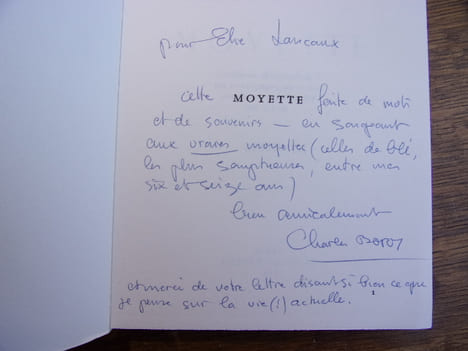 pour Elie Lancaux
cette MOYETTE faite de mots
et de souvenirs — en songeant
aux vraies moyettes (celles de blé,
les plus somptueuses, entre mes
six et seize ans)
bien amicalement
Charles
et merci de votre lettre disant si bien ce que
je pense sur la vie (!) actuelle.